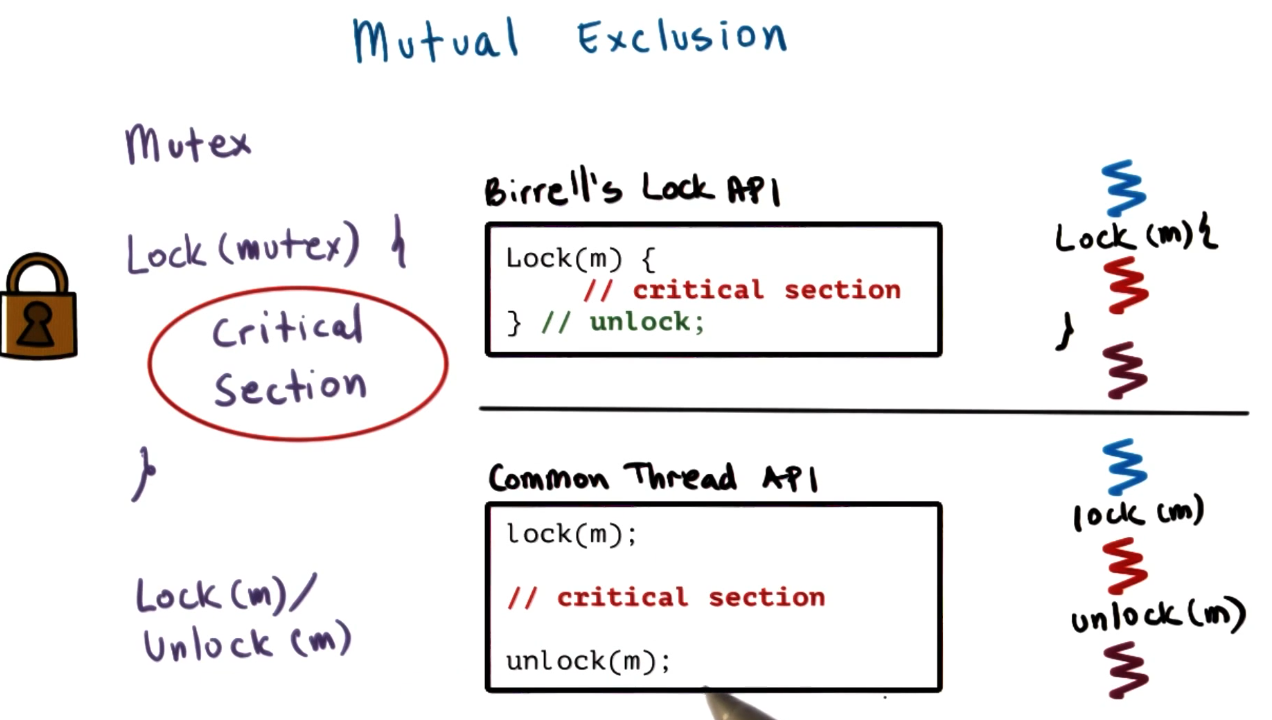 Mutual Exclusion
Mutex
Lock (mutex) {
Critical
Section
}
Lock (m)/
Unlock (m)
Birrell's Lock API
Lock(m) {
// critical section
} // unlock;
Common Thread API
lock(m);
// critical section
unlock(m);
Lock (m) {
}
lock (m)
unlock (m)